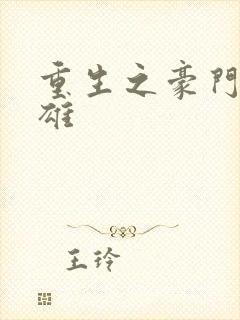 重生之豪門
雄
王玲